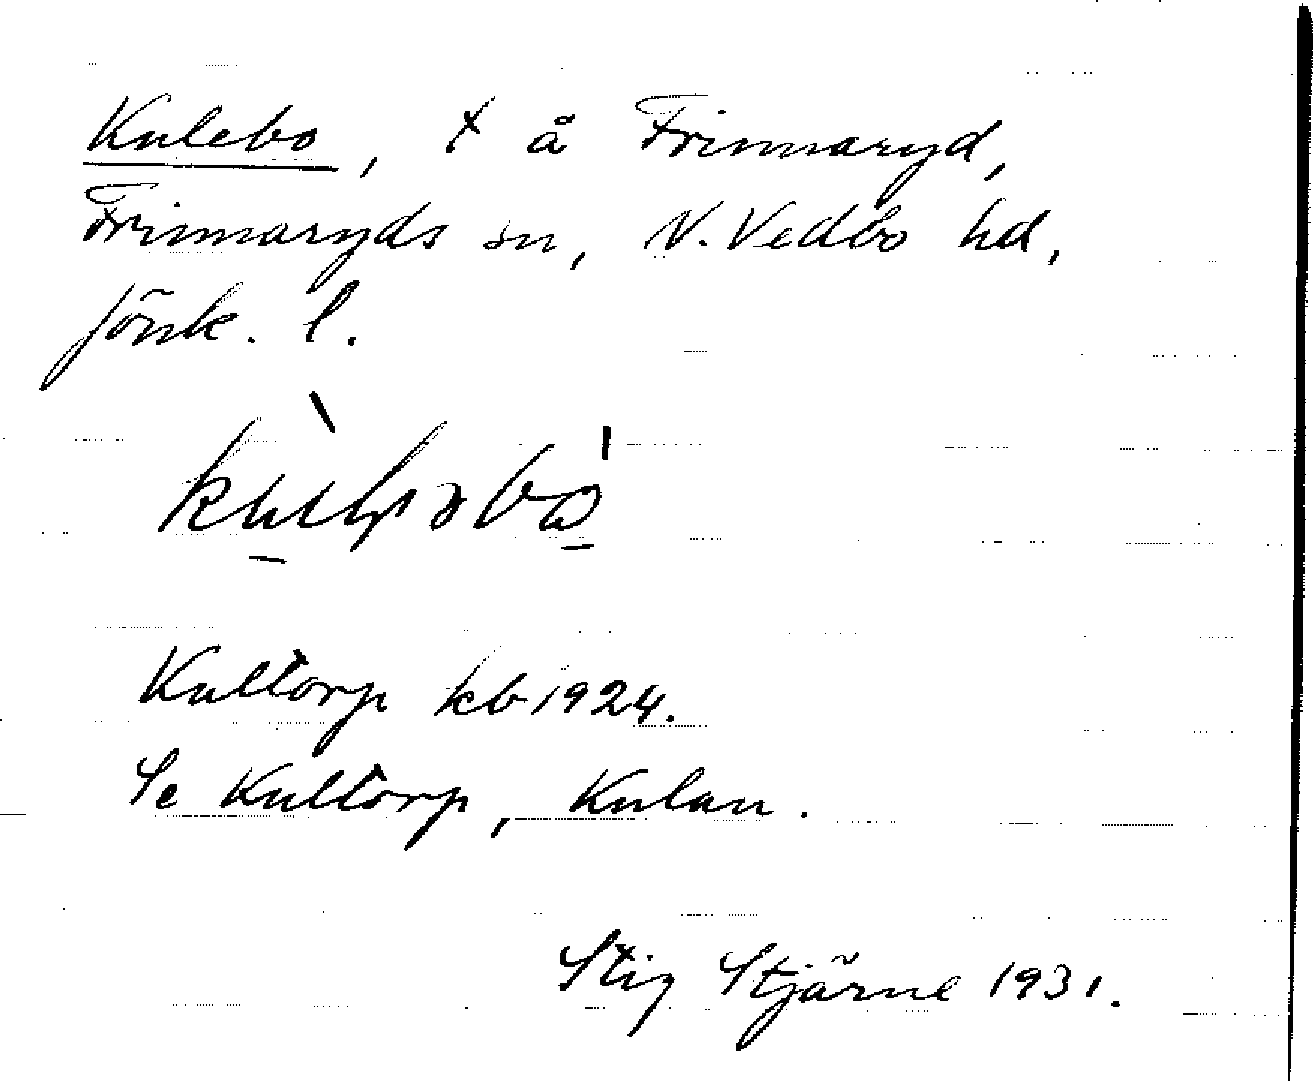 Kulebo, x å Frinnaryd,
Frinnaryds sn, N. Vedbo hd,
Jönk. l.
Kultorp kb 1924.
Se Kultorp, Kulan.
Stig Stjärne 1931.